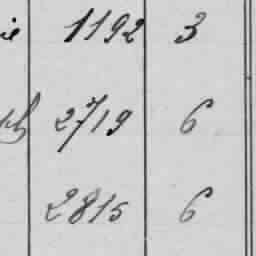 ie 1192 3
2719 6
2815 6